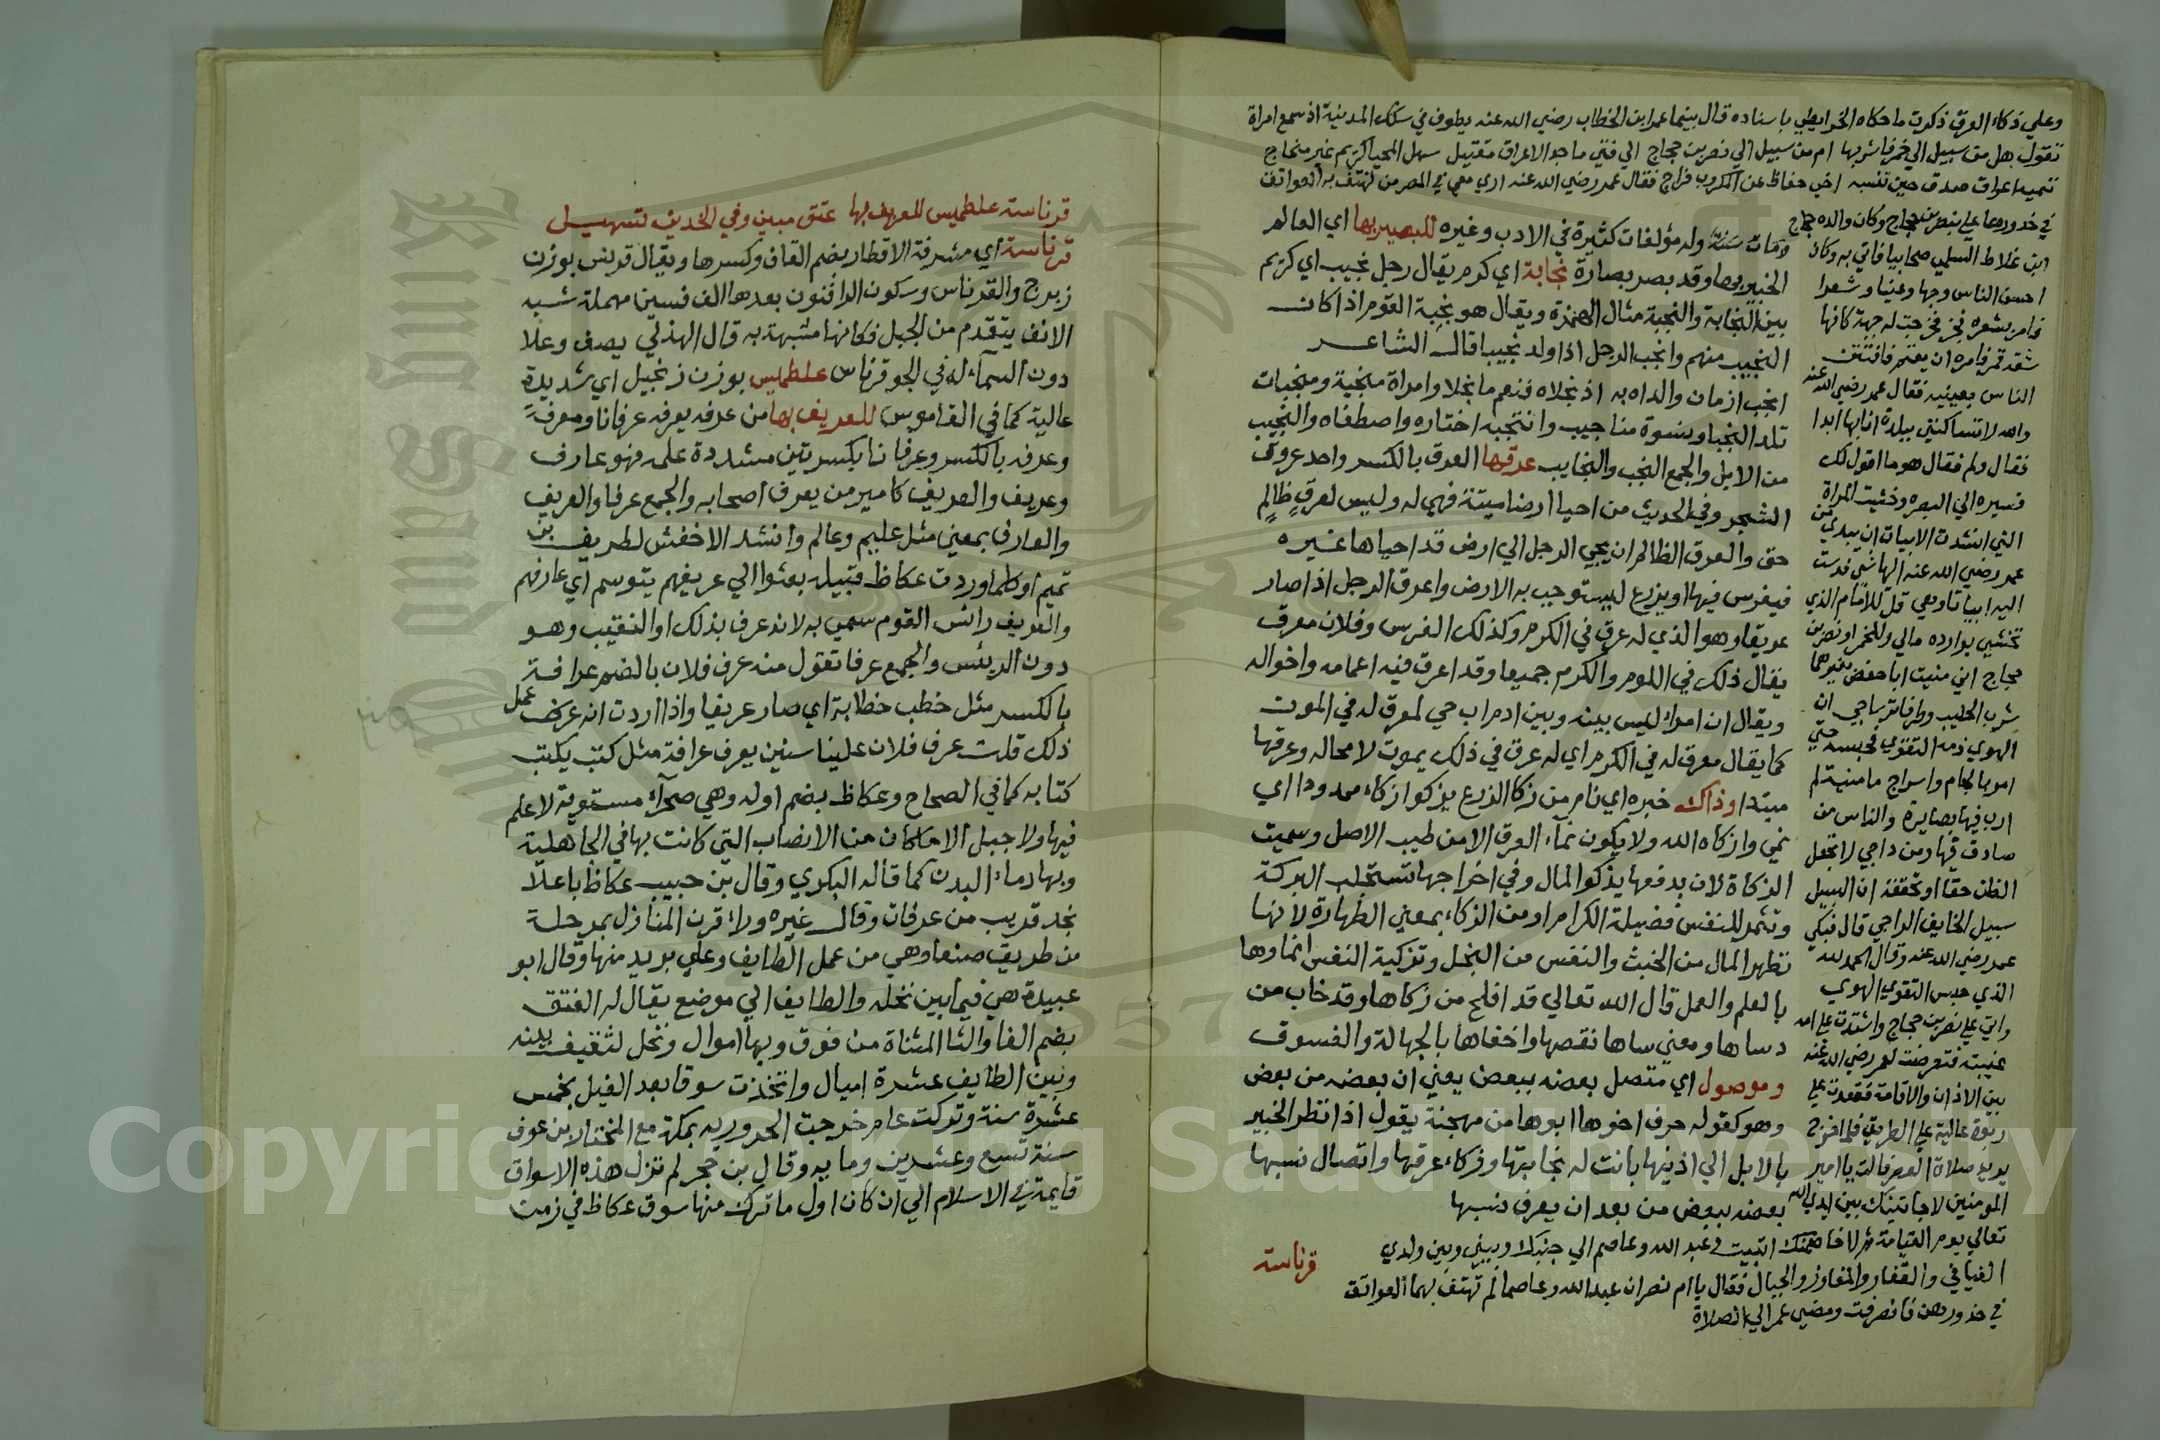 وعلى ذكاء العرق ذكرت ما حكاه الخرايطي باسناده قال بينما عمر ابن الخطاب رضي الله عنه يطوف في سكك المدينة اذ سمع امراة
تقول هل من سبيل الي خمر فاشربها ام من سبيل الي نصر بن حجاج الي فتى ماجد الاعراق مقتبل سهل المحيا كريم غير ملجاج
تنميه اعراق صدق حين تنسبه اخي حفاظ عن المكروب فراج فقال عمر رضي الله عنه اري معي في المصر من تهتف به العواتق
في خدورها علي بنصر بن حجاج وكان والده حجاج
ابن علاط السلمي صحابيا فاتي به وكان
احسن الناس وجها وعينا وشعرا
فامر بشعره فجز فخرجت له جبهة كانها
شقة قمر فامره ان يعتم فافتتن
الناس بعينيه فقال عمر رضي الله عنه
والله لا تساكنني ببلدة انا بها ابدا
فقال ولم فقال هو ما اقول لك
فسيره الي البصره وخشيت المراة
التي انشدت الابيات ان يبدي من
عمر رضي الله عنه اليها شي فدست
اليه ابياتا وهي قل للامام الذي
تخشي بوادره مالي وللخمر او نصر بن
حجاج اني منيت ابا حفص بغيرهما
شرب الحليب وطرف فاتر ساجي ان
الهوي ذمه التقوي فحبسه حتي
اقر بالجام واسراج ما منية لم
ارب فيها بضايرة والناس من
صادق فيها ومن داجي لا تجعل
الظن حقا او تحققه ان السبيل
سبيل الخايف الراجي قال فبكي
عمر رضي الله عنه وقال الحمد لله
الذي حبس التقوي الهوي
واتي علي نصر بن حجاج واشتدت علي امه
غيبته فتعرضت لعمر رضي الله عنه
بين الاذان والاقامة فقعدت علي
ربوة عالية علي الطريق فلما خرج
يريد صلاة العصر قالت يا امير
المومنين لاجاثينك بين ايدي الله
تعالي يوم القيامة ثم لاخاصمنك ابيت عبد الله وعاصم الي جنبك وبيني وبين ولدي
الفيافي والقفار والمفاوز والجبال فقال يا ام نصر ان عبد الله وعاصما لم تهتف بهما العواتق
في خدورهن فانصرفت ومضي عمر الي الصلاة
ومات سنة وله مؤلفات كثيرة في الادب وغيره للبصير بها اي العالم
الخبير بها وقد بصر بصارة نجابة اي كرم يقال رجل نجيب اي كريم
بين النجابة والنجبة مثال الهمزة ويقال هو نجبة القوم اذا كان
النجيب منهم وانجب الرجل اذا ولد نجيبا قال الشاعر
انجب ازمان والداه به اذ نجلاه فنعم ما نجلا وامراة منجبة ومنجبات
تلد النجبا ونسوة مناجيب وانتجبه اختاره واصطفاه والنجيب
من الابل والجمع النجب والنجايب عرقها العرق بالكسر واحد عروق
الشجر وفي الحديث من احيا ارضا ميتة فهي له وليس لعرق ظالم
حق والعرق الظالم ان يجي الرجل الي ارض قد احياها غيره
فيغرس فيها او يزرع ليستوجب به الارض واعرق الرجل اذا صار
عريقا وهو الذي له عرق في الكرم وكذلك الفرس وفلان معرق
يقال ذلك في اللوم والكرم جميعا وقد اعرق فيه اعمامه واخواله
ويقال ان امراء ليس بينه وبين ادم اب حي لمعرق له في الموت
كما يقال معرق له في الكرم اي له عرق في ذلك يموت لا محاله وعرقها
مبتدا وذاك خبره اي نام من زكا الزرع يزكو ازكاء ممدودا اي
نمي وازكاه الله ولا يكون نماء العرق الا من طيب الاصل وسميت
الزكاة لان بدفعها يزكو المال وفي اخراجها تستجلب البركة
وتثمر للنفس فضيلة الكرام او من الزكاء بمعني الطهارة لانها
تطهر المال من الخبث والنفس من البخل وتزكية النفس انماوها
بالعلم والعمل قال الله تعالي قد افلح من زكاها وقد خاب من
دساها ومعني ساها نقصها واخفاها بالجهالة والفسوق
وموصول اي متصل بعضه ببعض يعني ان بعضه من بعض
وهو كقوله حرف اخوها ابوها من مهجنة يقول اذا نظر الخبير
بالابل الي اذنيها بانت له نجابتها وزكاء عرقها واتصال نسبها
بعضه ببعض من بعد ان يعرف نسبها
قرناسة
قرناسة علطميس للعريف بها عتق مبين وفي الخدين تسهيل
قرناسة اي مشرفة الاقطار بضم القاف وكسرها ويقال قرنس بوزن
زبرج والقرناس وسكون الرا فنون بعدها الف فسين مهملة شبه
الانف يتقدم من الجبل فكانها مشبهة به قال الهذلي يصف وعلا
دون السماء له في الجو قرناس علطميس بوزن زنجبيل اي شديدة
عالية كما في القاموس للعريف بها من عرفه يعرفه عرفانا ومعرفة
وعرفه بالكسر وعرفانا بكسرتين مشددة علمه فهو عارف
وعريف والعريف كامير من يعرف اصحابه والجمع عرفا والعريف
والعارف بمعني مثل عليم وعالم وانشد الاخفش لطريف بن
تميم اوكلما وردت عكاظ قبيلة بعثوا الي عريفهم يتوسم اي عارفهم
والعريف رائس القوم سمي به لانه عرف بذلك او النقيب وهو
دون الريئس والجمع عرفا تقول منه عرف فلان بالضم عرافة
بالكسر مثل خطب خطابة اي صار عريفا واذا اردت انه عرف عمل
ذلك قلت عرف فلان علينا سنين يعرف عرافة مثل كتب يكتب
كتابه كما في الصحاح وعكاظ بضم اوله وهي صحراء مستوية لا علم
فيها ولا جبل الا ما كان من الانصاب التي كانت بها في الجاهلية
وبها دماء البدن كما قاله البكري وقال بن حبيب عكاظ باعلا
نجد قريب من عرفات وقال غيره وراء قرن المنازل بمرحلة
من طريق صنعا وهي من عمل الطايف وعلي بريد منها وقال ابو
عبيدة هي فيما بين نخله والطايف الي موضع يقال له الفتق
بضم الفا والتا المثناة من فوق وبها اموال ونخل لثقيف بينه
وبين الطايف عشرة اميال واتخذت سوقا بعد الفيل بخمس
عشرة سنة وتركت عام خرجت الحروريه بمكة مع المختار بن عوف
سنة تسع وعشرين وماية وقال بن حجر لم تزل هذه الاسواق
قايمة في الاسلام الي ان كان اول ما ترك منها سوق عكاظ في زمن
King Saud
1957
Copyright © King Saud University